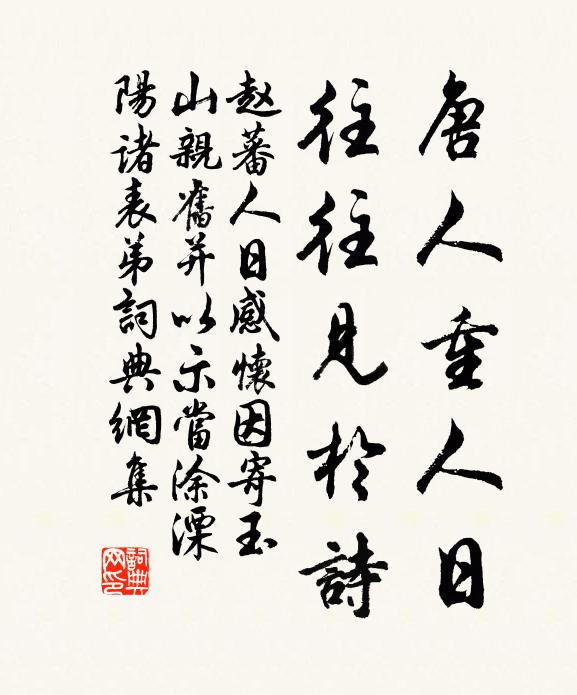 唐人重人日
往往見於詩
赵蕃人日感懷因寄玉
山親舊并以示當涂溧
陽諸表弟詞典網集
詞典网印